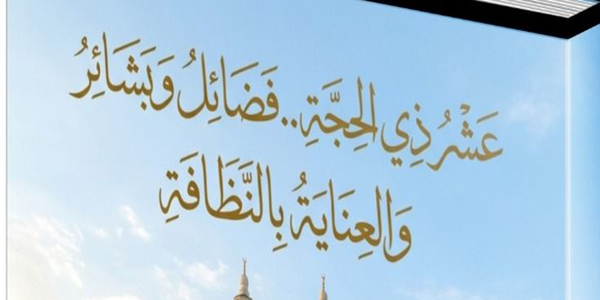 عَشْرُ ذِي الحِجَّةِ..فَضَائِلُ وَبَشَائِرُ
وَالعِنَايَةُ بِالنَّظَافَةِ